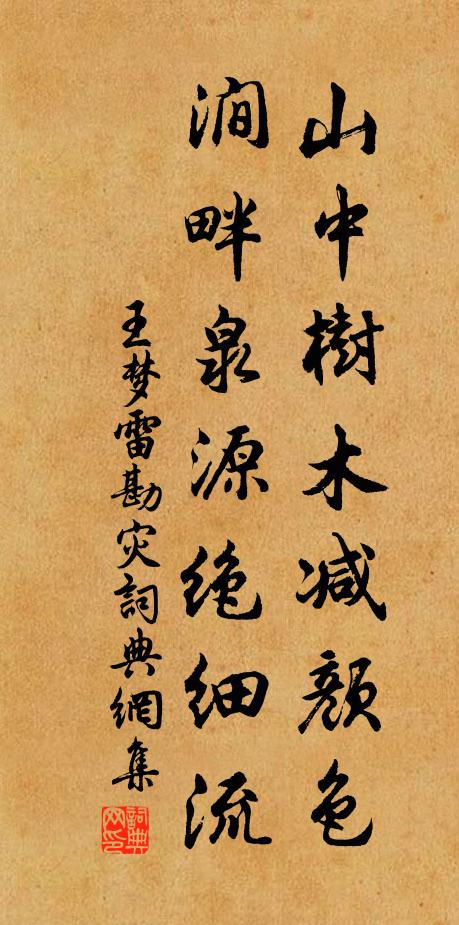 山中樹木减颜色
涧畔泉源绝细流
王梦雷勘灾詞典網集
詞典网印